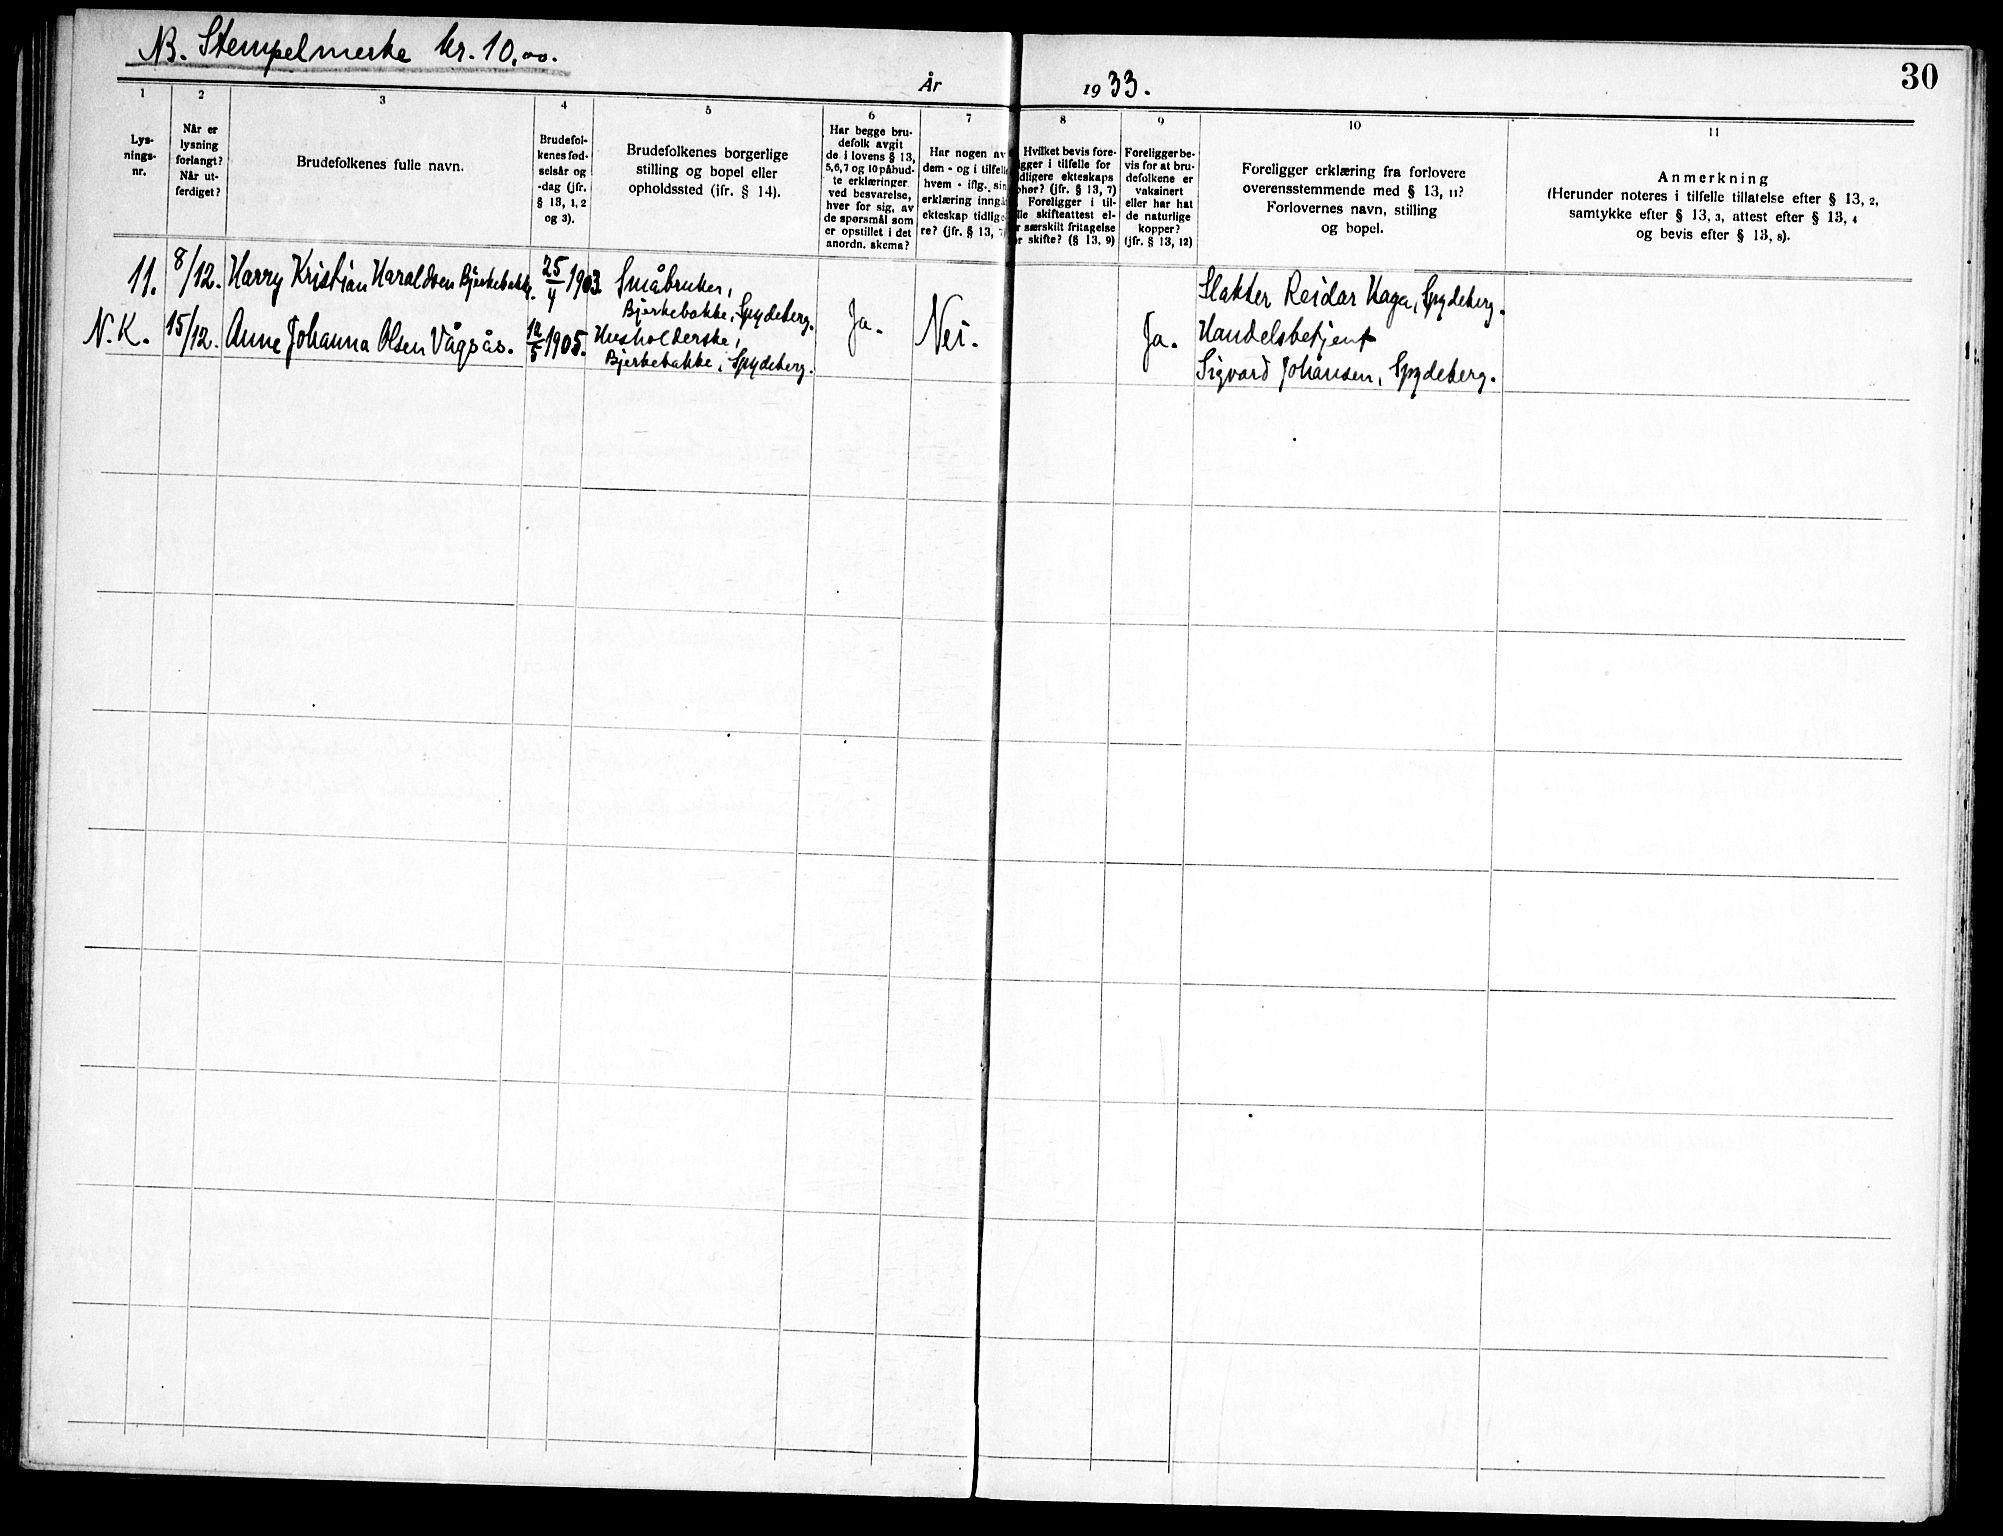 NB. Stempelmerke kr. 10,00.
År 1933.
30
1
Lys-
nings-
nr.
2
Når er
lysning
forlangt?
Når ut-
ferdiget?
3
Brudefolkenes fulle navn.
4
Brudefol-
kenes fød-
selsår og
-dag (jfr.
§ 13, 1, 2
og 3).
5
Brudefolkenes borgerlige
stilling og bopel eller
opholdssted (jfr. § 14).
6
Har begge bru-
defolk avgit
de i lovens § 13,
5, 6, 7 og 10 påbud-
te erklæringer
ved besvarelse,
hver for sig, av
de spørsmål som
er opstillet i det
anordn. skema?
7
Har nogen av
dem - og i tilfelle
hvem - iflg. sin
erklæring inngå
ekteskap tidlige
re? (jfr. § 13, 7)
8
Hvilket bevis fore-
igger i tilfelle for
dligere ekteskaps
phør? (jfr. § 13, 7)
Foreligger i til-
lle skifteattest el-
r særskilt fritagelse
or skifte? (§ 13, 9)
9
Foreligger be-
vis for at bru-
defolkene er
vaksinert
eller har hat
de naturlige
kopper?
(jfr. § 13, 12)
10
Foreligger erklæring fra forlovere
overensstemmende med § 13, 11?
Forlovernes navn, stilling
og bopel.
11
Anmerkning
(Herunder noteres i tilfelle tillatelse efter § 13, 2,
samtykke efter § 13, 3, attest efter § 13, 4
og bevis efter § 13, 8).
11.
N. K.
8/12.
15/12.
Harry Kristian Haraldsen Bjerkebakke.
Anne Johanna Olsen Vågsås.
25/4 1903.
12/5 1905.
Småbruker,
Bjerkebakke, Spydeberg.
Husholderske,
Bjerkebakke, Spydeberg.
Ja.
Nei.
Ja.
Slakter Reidar Haga, Spydeberg.
Handelsbetjent
Sigvard Johansen, Spydeberg.